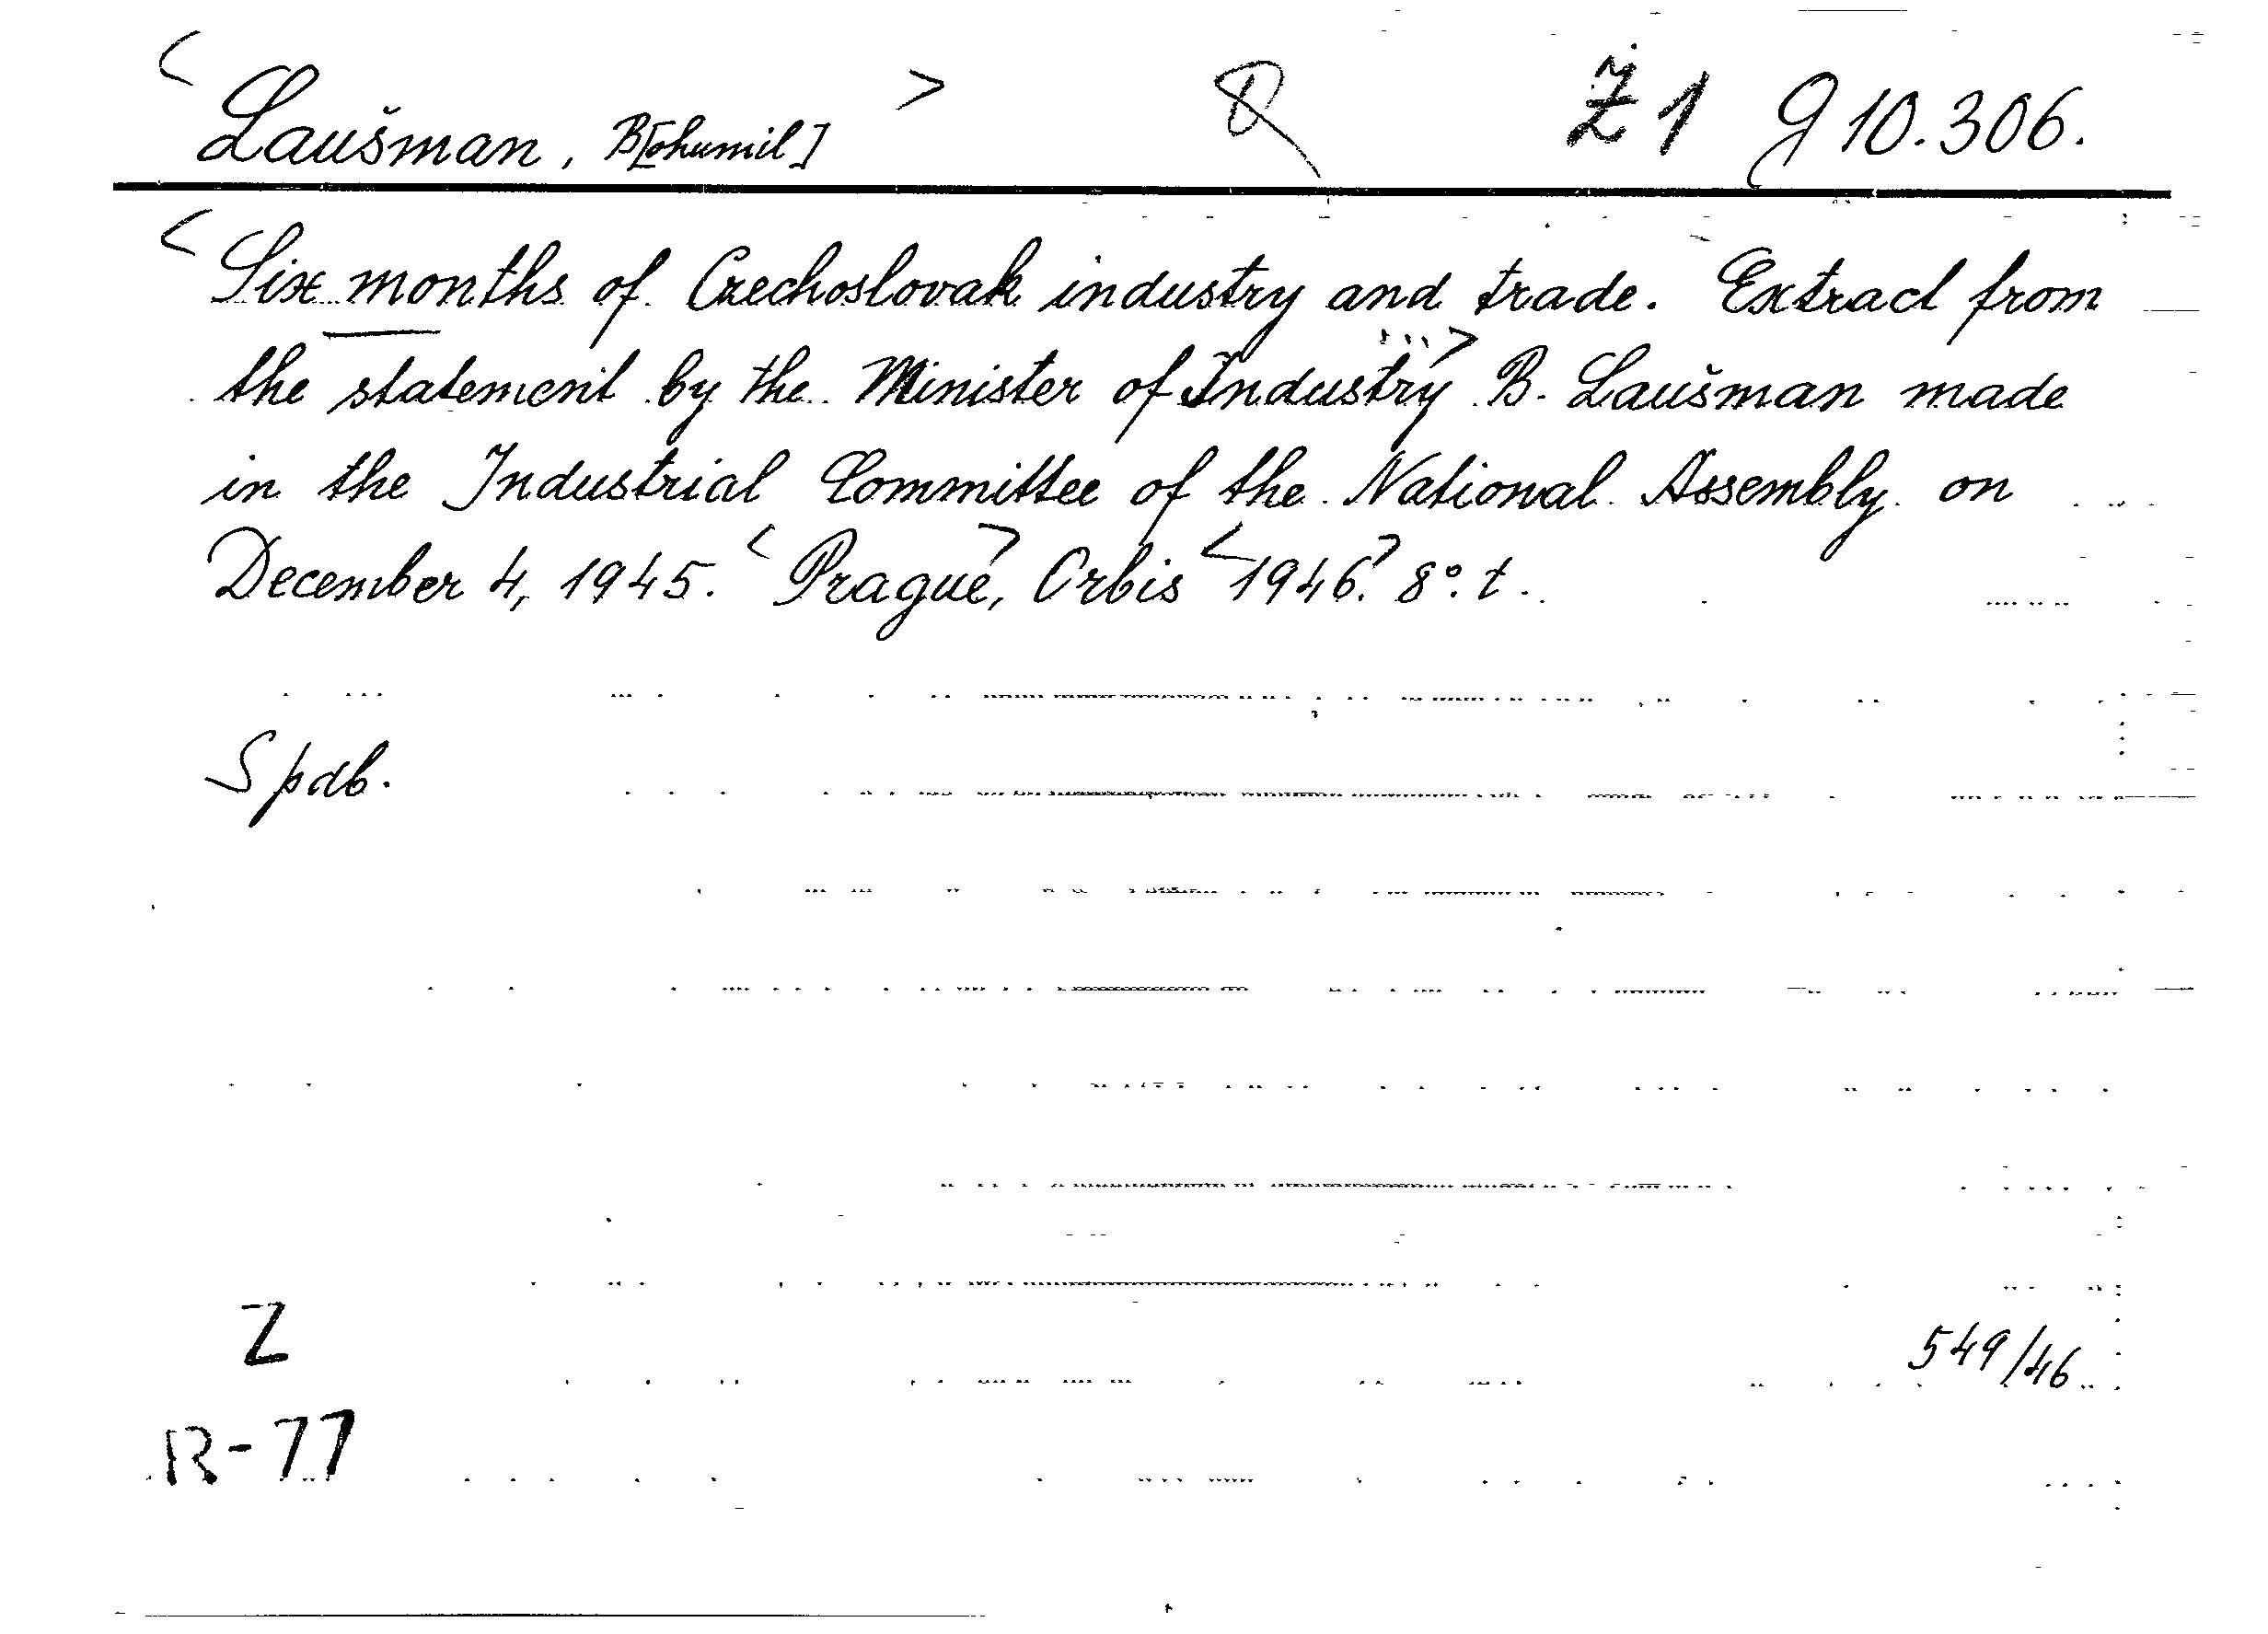 < Laušman, B[ohumil] > Ž1 G 10.306.
< Six months of Czechoslovak industry and trade. Extract from
the statement by the Minister of Industry ...> B. Laušman made
in the Industrial Committee of the National Assembly on
December 4, 1945. < Prague >, Orbis < 1946 >. 8°. t.
Spdb.
Z
549/46
R-77